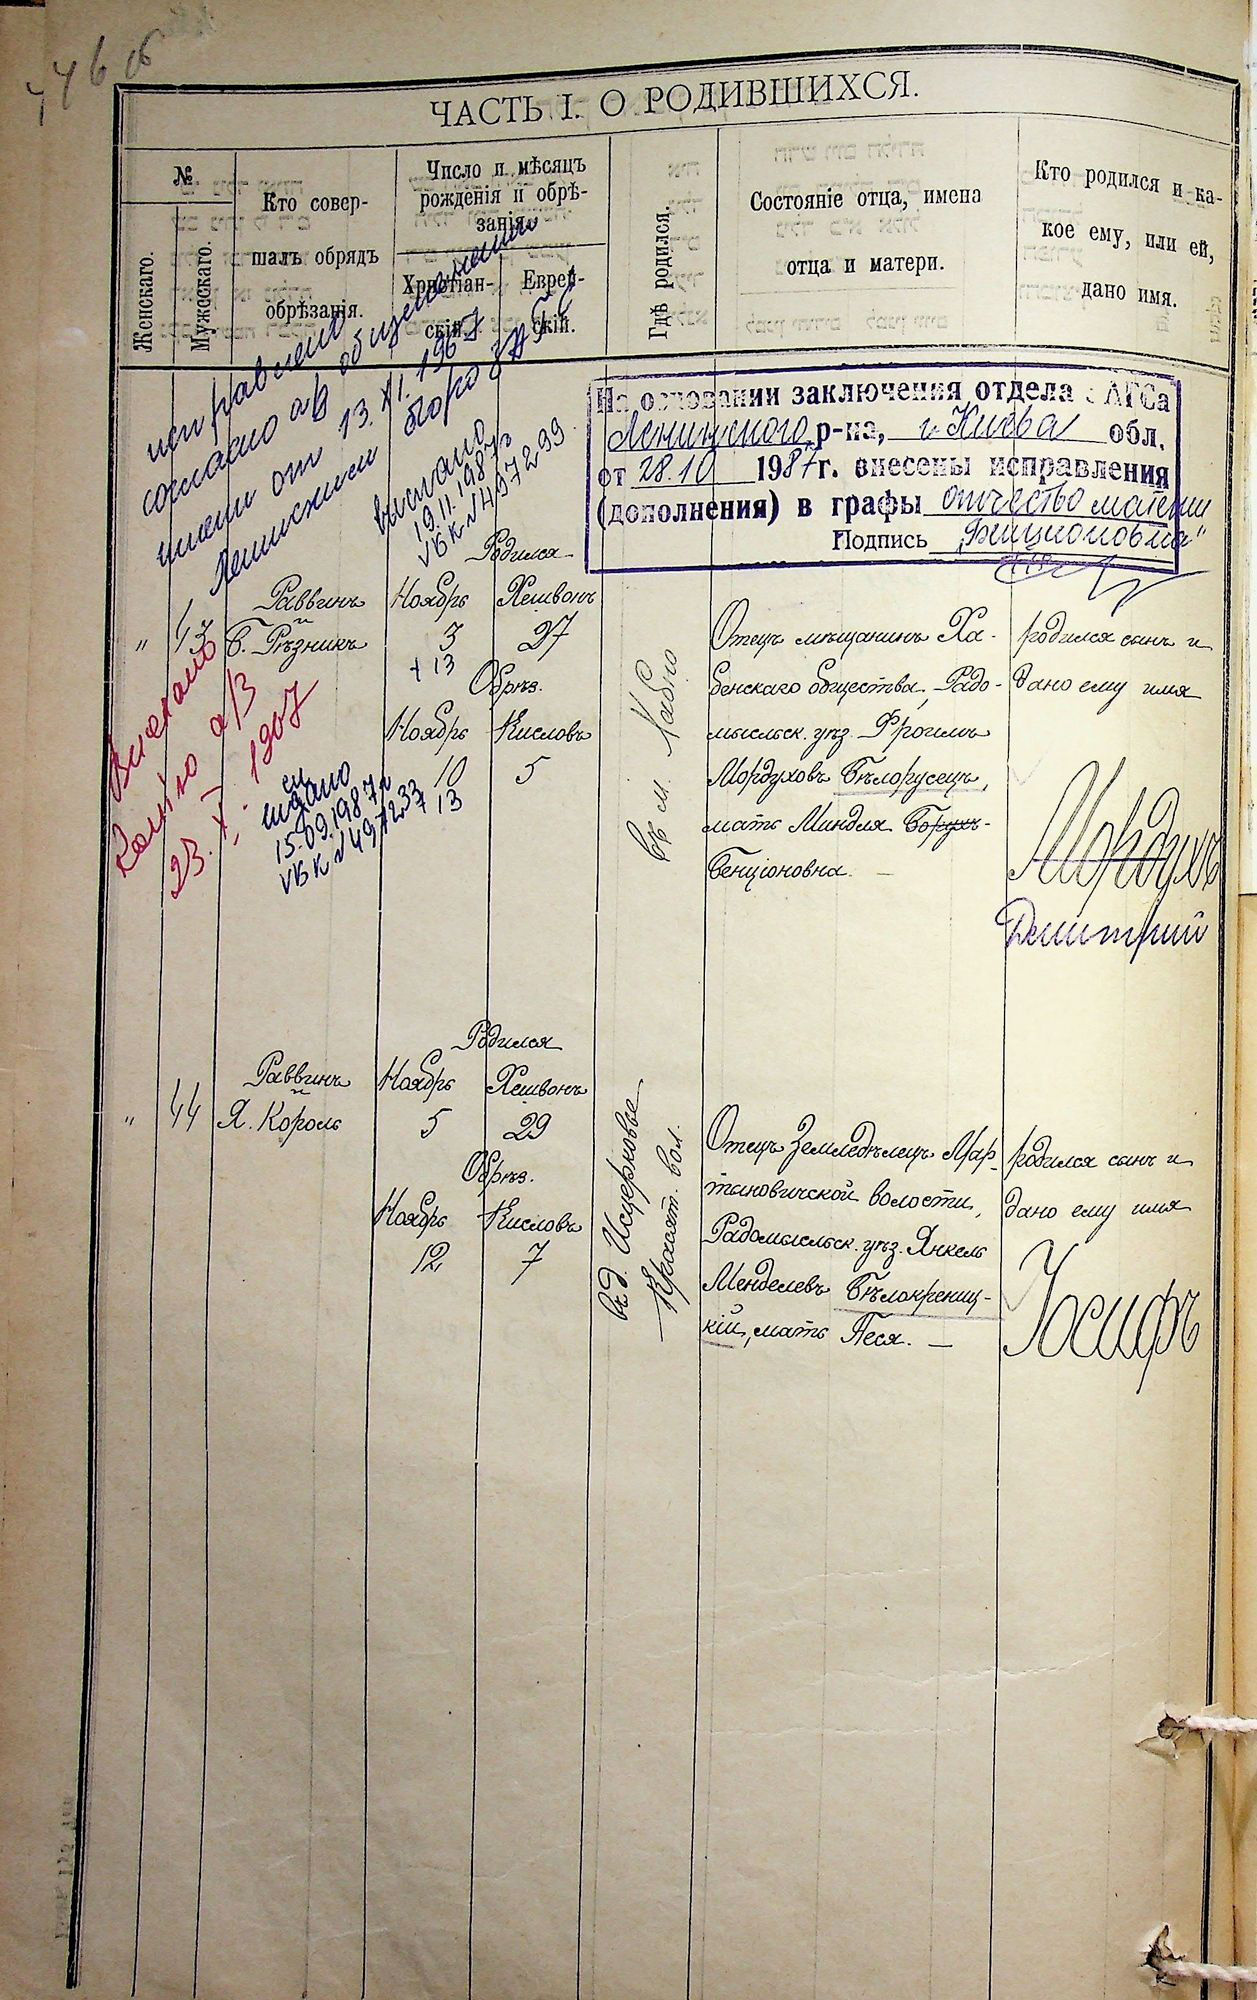 446 об
ЧАСТЬ I. О РОДИВШИХСЯ.
№
Женскаго.
Мужескаго.
Кто совер-
шалъ обрядъ
обрѣзанія.
Число и мѣсяцъ
рожденія и обрѣ-
занія.
Христіан-
скій.
Еврей-
скій.
Гдѣ родился.
Состояніе отца, имена
отца и матери.
Кто родился и ка-
кое ему, или ей,
дано имя.
исправлено
согласно а/в об изменении
имени от 13. XI. 1967
Ленинским бюро ЗАГС
выслано
19.11.1987г
VБК №497299
На основании заключения отдела ЗАГСа
Ленинского р-на, г. Киева обл.
от 28.10 1987г. внесены исправления
(дополнения) в графы отчество матери
Подпись „Бенционовна"
Родился
" 43
Раввинъ
и
Б. Рѣзникъ
Ноябрь
3
+ 13
Хешвонъ
27
Обрѣз.
Ноябрь
10
+ 13
Кисловъ
5
въ м. Хабно
Отецъ мѣщанинъ Ха-
бенскаго общества, Радо-
мысльск. уѣз. Фроимъ
Мордуховъ Бѣлорусецъ,
мать Миндля Борухъ-
Бенціоновна. —
родился сынъ и
дано ему имя
Мордухъ
Дмитрий
а/в
23. X. 1907
15.09.1987г
VБК №497233
Родился
" 44
Раввинъ
и
Я. Король
Ноябрь
5
Хешвонъ
29
Обрѣз.
Ноябрь
12
Кисловъ
7
въ д.
вол.
Отецъ Земледѣлецъ Мар-
тыновичской волости,
Радомысльск. уѣз. Янкель
Менделевъ Бѣлокрениц-
кій, мать Песя. —
родился сынъ и
дано ему имя
Іосифъ